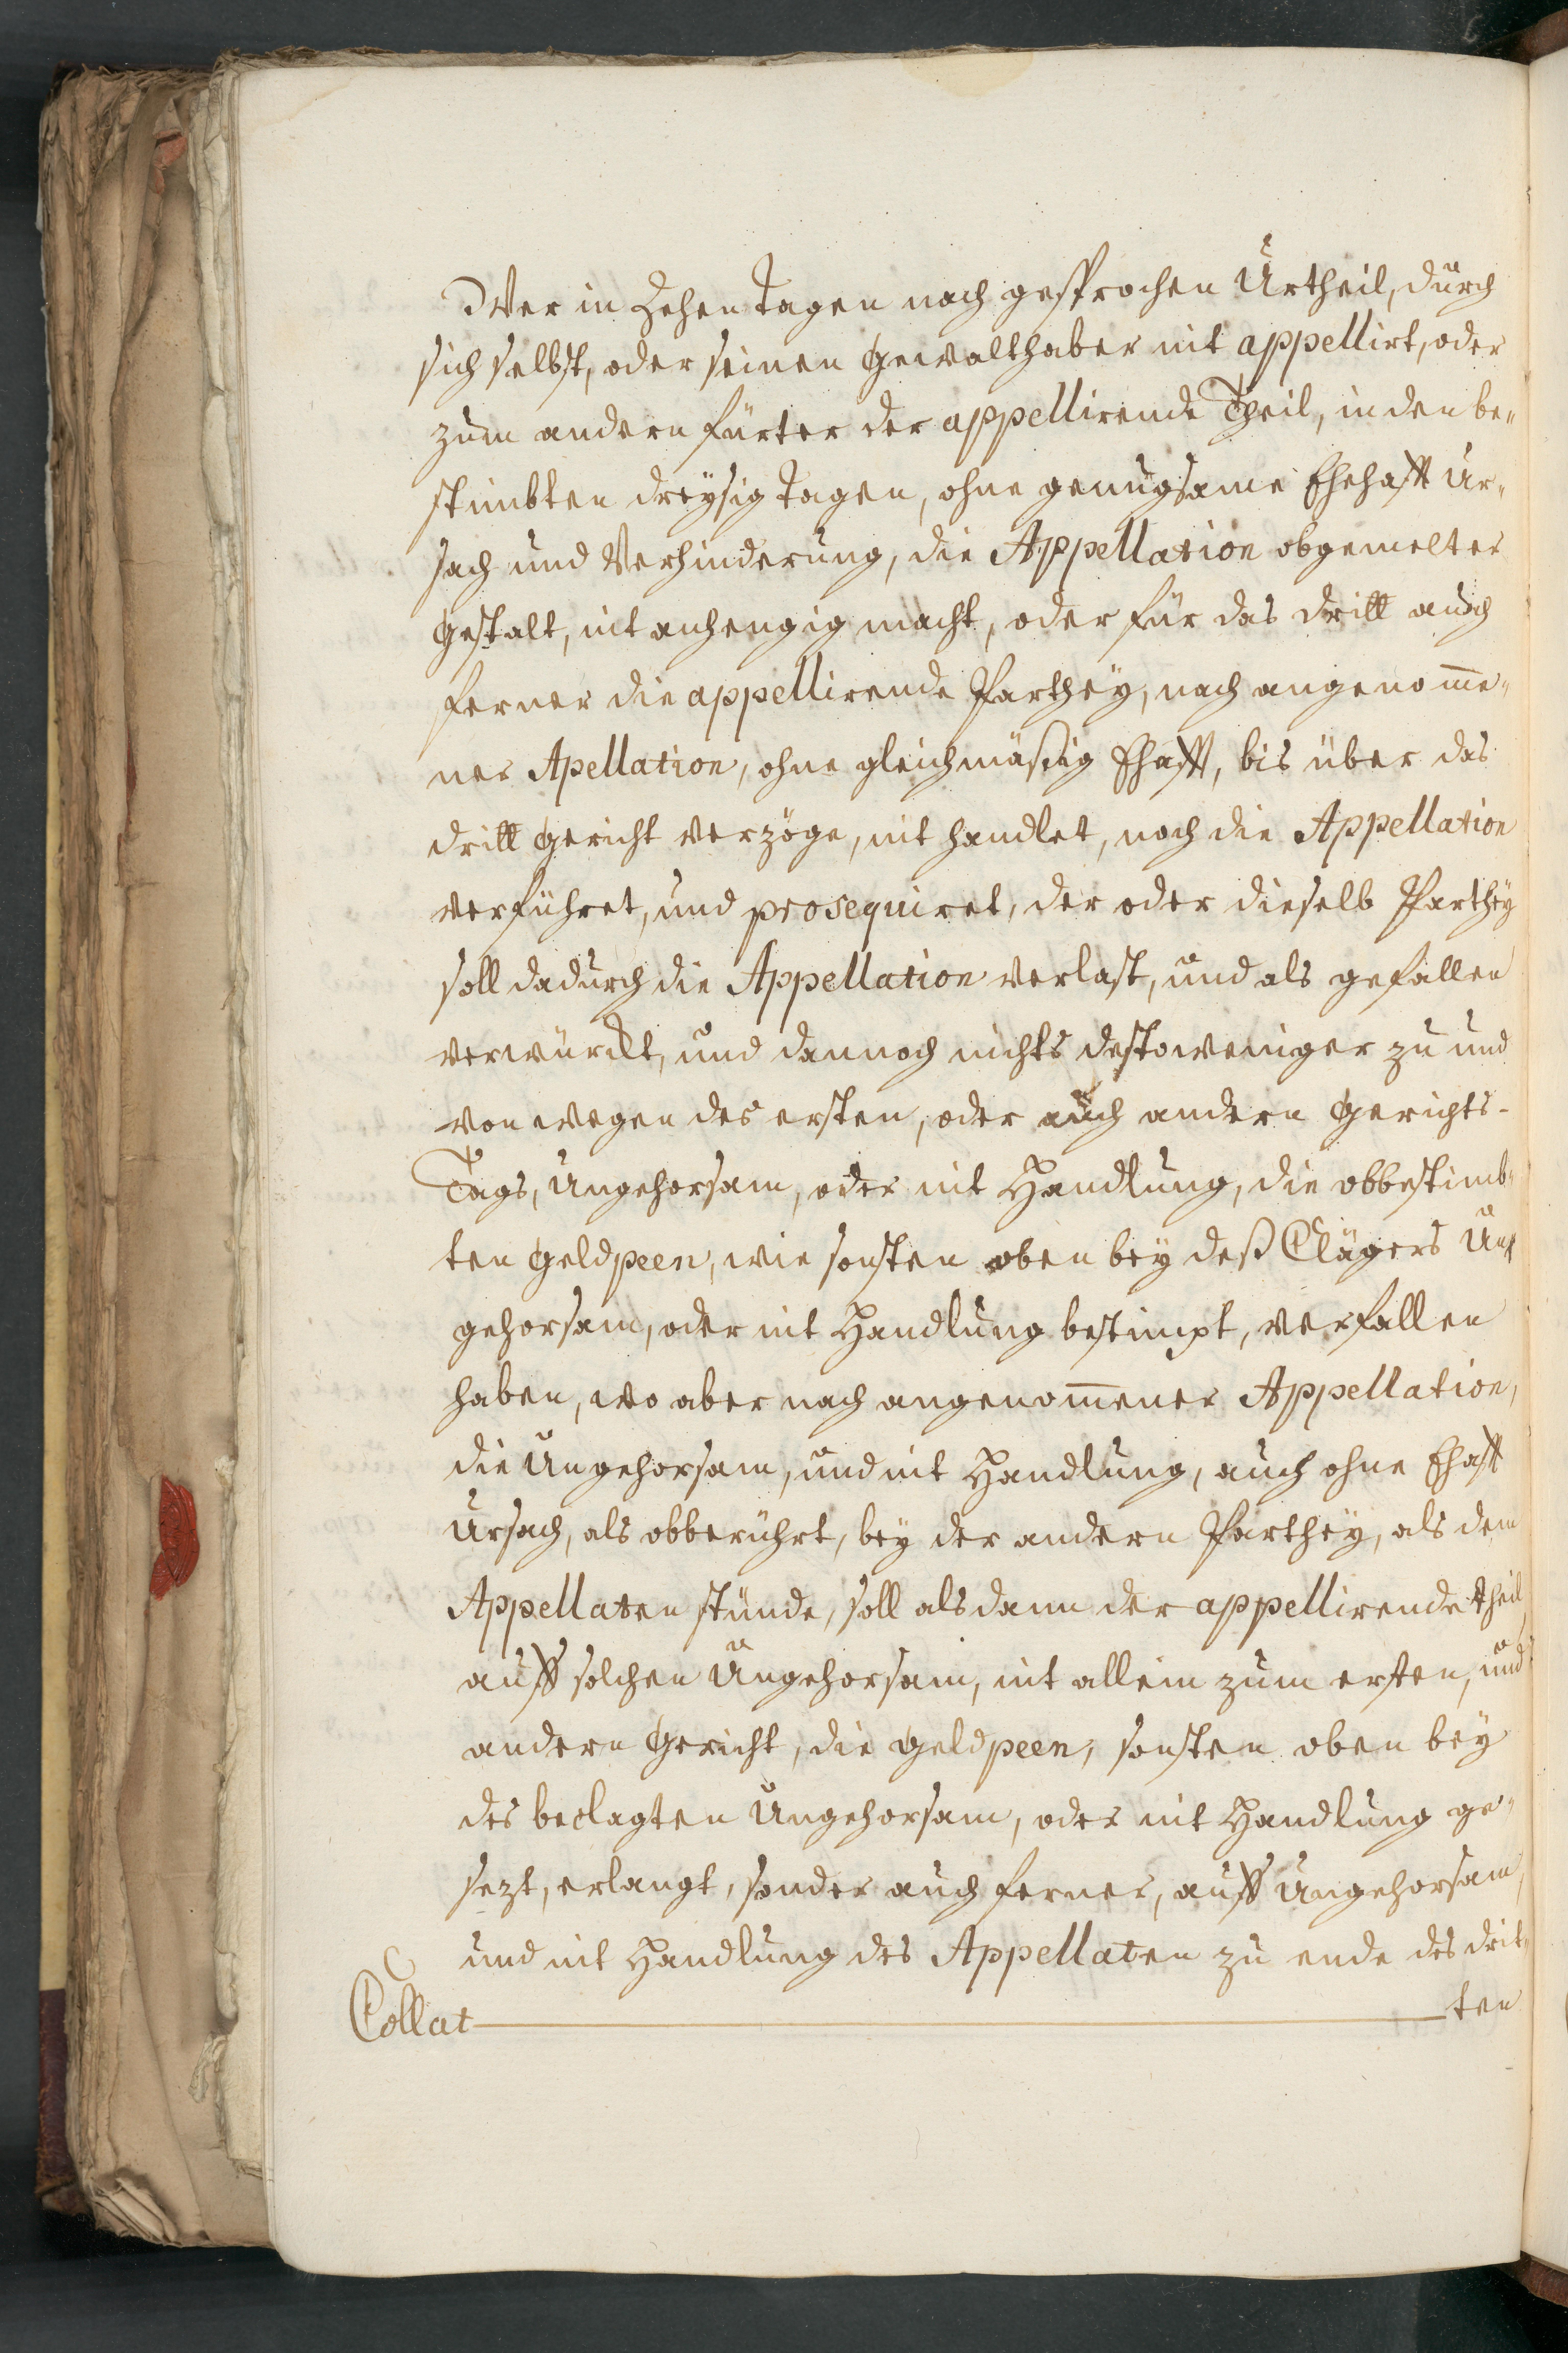 Wer in Zehen tagen nach gesprochen Urtheil, durch
sich selbst, oder seinen gewalthaber nit appellirt, oder
zum andern fürter der appellirende Theil, in den be„
stimbten dreysig tagen, ohne genugsame Ehehafft Ur„
sach und Verhinderung, die Appellation obgemelter
gestalt, nit anhengig macht, oder für das dritt auch
ferner die appellirende Parthey, nach angenom̄e„
ner Apellation, ohne gleichmäßig Ehafft, bis über das
dritt gericht verzöge, nit handlet, noch die Appellation
verführet, und prosequiret, der oder dieselb Parthey
soll dadurch die Appellation verlast, und als gefallen
verwürckt, und dannoch nichts destoweniger zu und
von wegen des ersten, oder auch andern gerichts-
Tags, Ungehorsam, oder nit Handlung, die obbestimb„
ten geldpeen, wie sonsten oben bey deß Clägers Un„
gehorsam, oder nit Handlung bestimpt, verfallen
haben, wo aber nach angenom̄ener Appellation,
die Ungehorsam, und nit Handlung, auch ohne Ehafft
Ursach, als obberührt, bey der andern Parthey, als dem
Appellaten stünde, soll alsdann der appellirende theil,
auff solchen Ungehorsam, nit allein zum ersten, und
andern gericht, die geldpeen, sonsten oben bey
des beclagten Ungehorsam, oder nit Handlung ge„
sezt, erlangt, sonder auch ferner, auff Ungehorsam,
und nit Handlung des Appellaten zu ende des drit„
ten
Collat